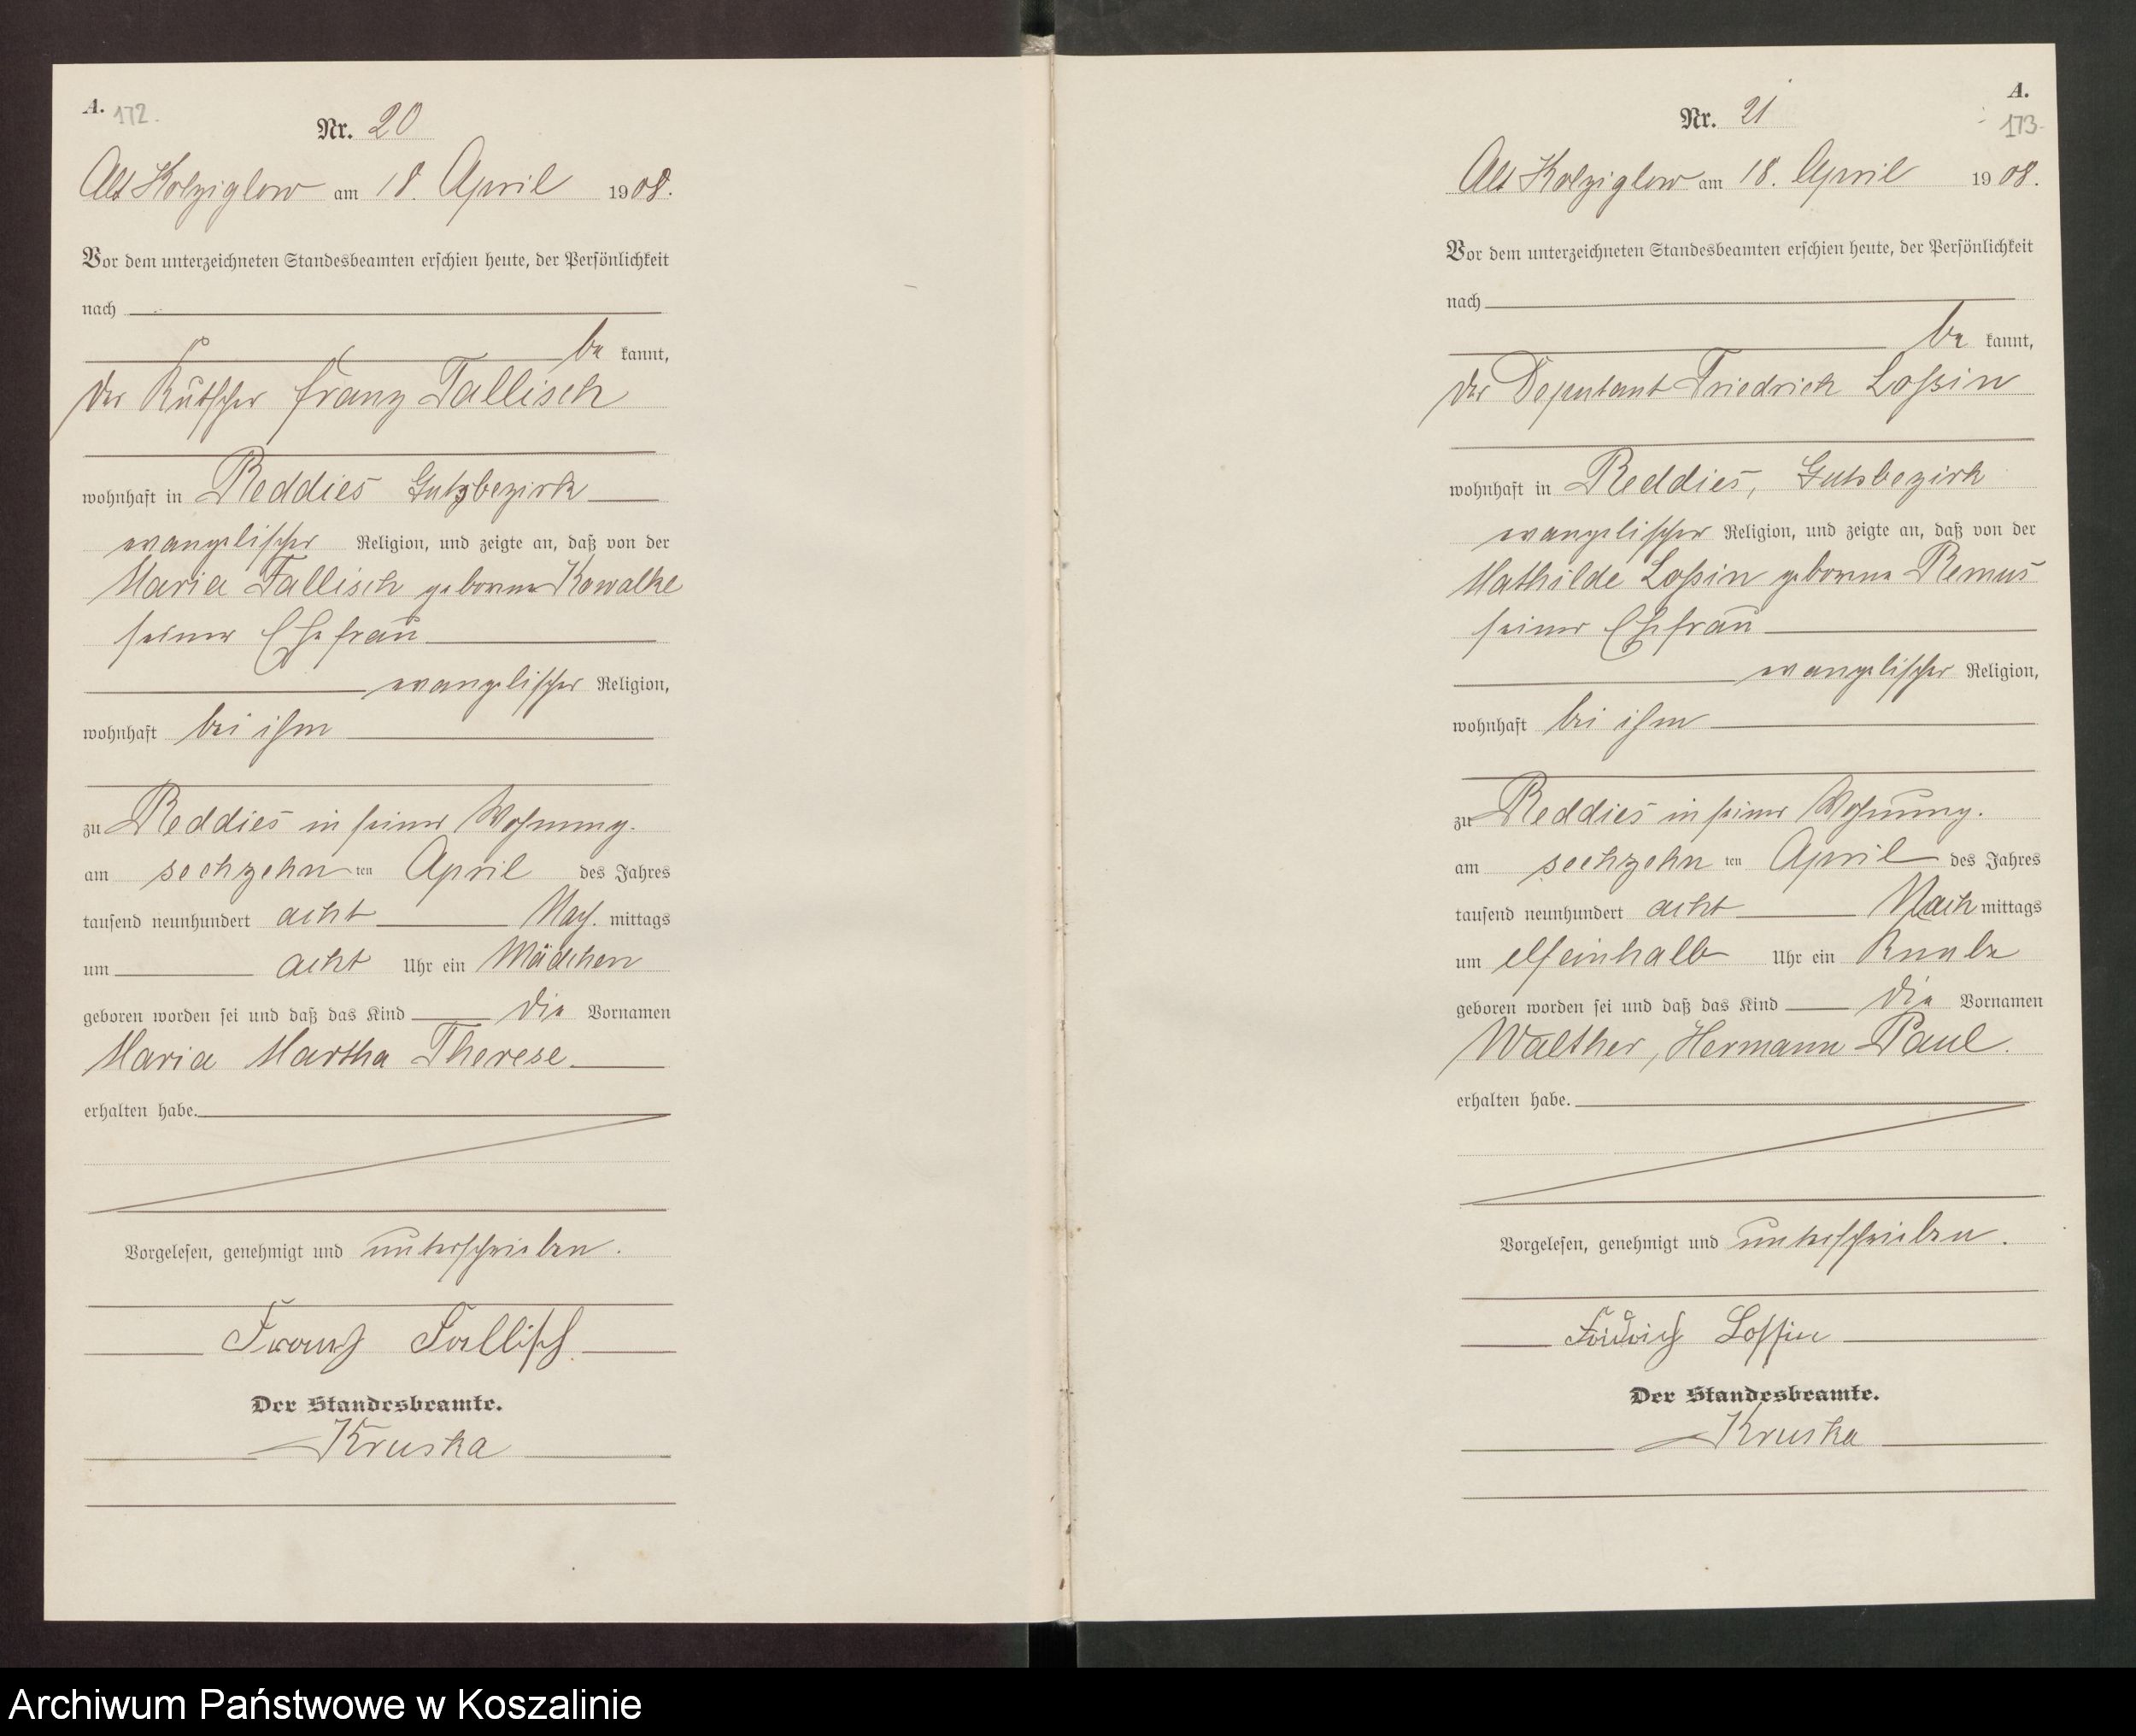 A. 172.
Nr. 20
Alt Kolziglow am 18. April 1908.
Vor dem unterzeichneten Standesbeamten erschien heute, der Persönlichkeit
nach
be kannt,
der Kutscher Franz Tallisch
wohnhaft in Reddies Gutsbezirk
evangelischer Religion, und zeigte an, daß von der
Maria Tallisch geborene Kowalke
seiner Ehefrau
evangelischer Religion,
wohnhaft bei ihm
zu Reddies in seiner Wohnung.
am sechzehn ten April des Jahres
tausend neunhundert acht Nach mittags
um acht Uhr ein Mädchen
geboren worden sei und daß das Kind die Vornamen
Maria Martha Therese
erhalten habe.
Vorgelesen, genehmigt und unterschrieben.
Franz Tallisch
Der Standesbeamte.
Kruska
A.
173.
Nr. 21
Alt Kolziglow am 18. April 1908.
Vor dem unterzeichneten Standesbeamten erschien heute, der Persönlichkeit
nach
be kannt,
der Deputant Friedrich Loßin
wohnhaft in Reddies, Gutsbezirk
evangelischer Religion, und zeigte an, daß von der
Mathilde Loßin geborene Remus
seiner Ehefrau
evangelischer Religion,
wohnhaft bei ihm
zu Reddies in seiner Wohnung.
am sechzehn ten April des Jahres
tausend neunhundert acht Nach mittags
um elfeinhalb Uhr ein Knabe
geboren worden sei und daß das Kind die Vornamen
Walther, Hermann Paul.
erhalten habe.
Vorgelesen, genehmigt und unterschrieben.
Friedrich Lossin
Der Standesbeamte.
Kruska
Archiwum Państwowe w Koszalinie